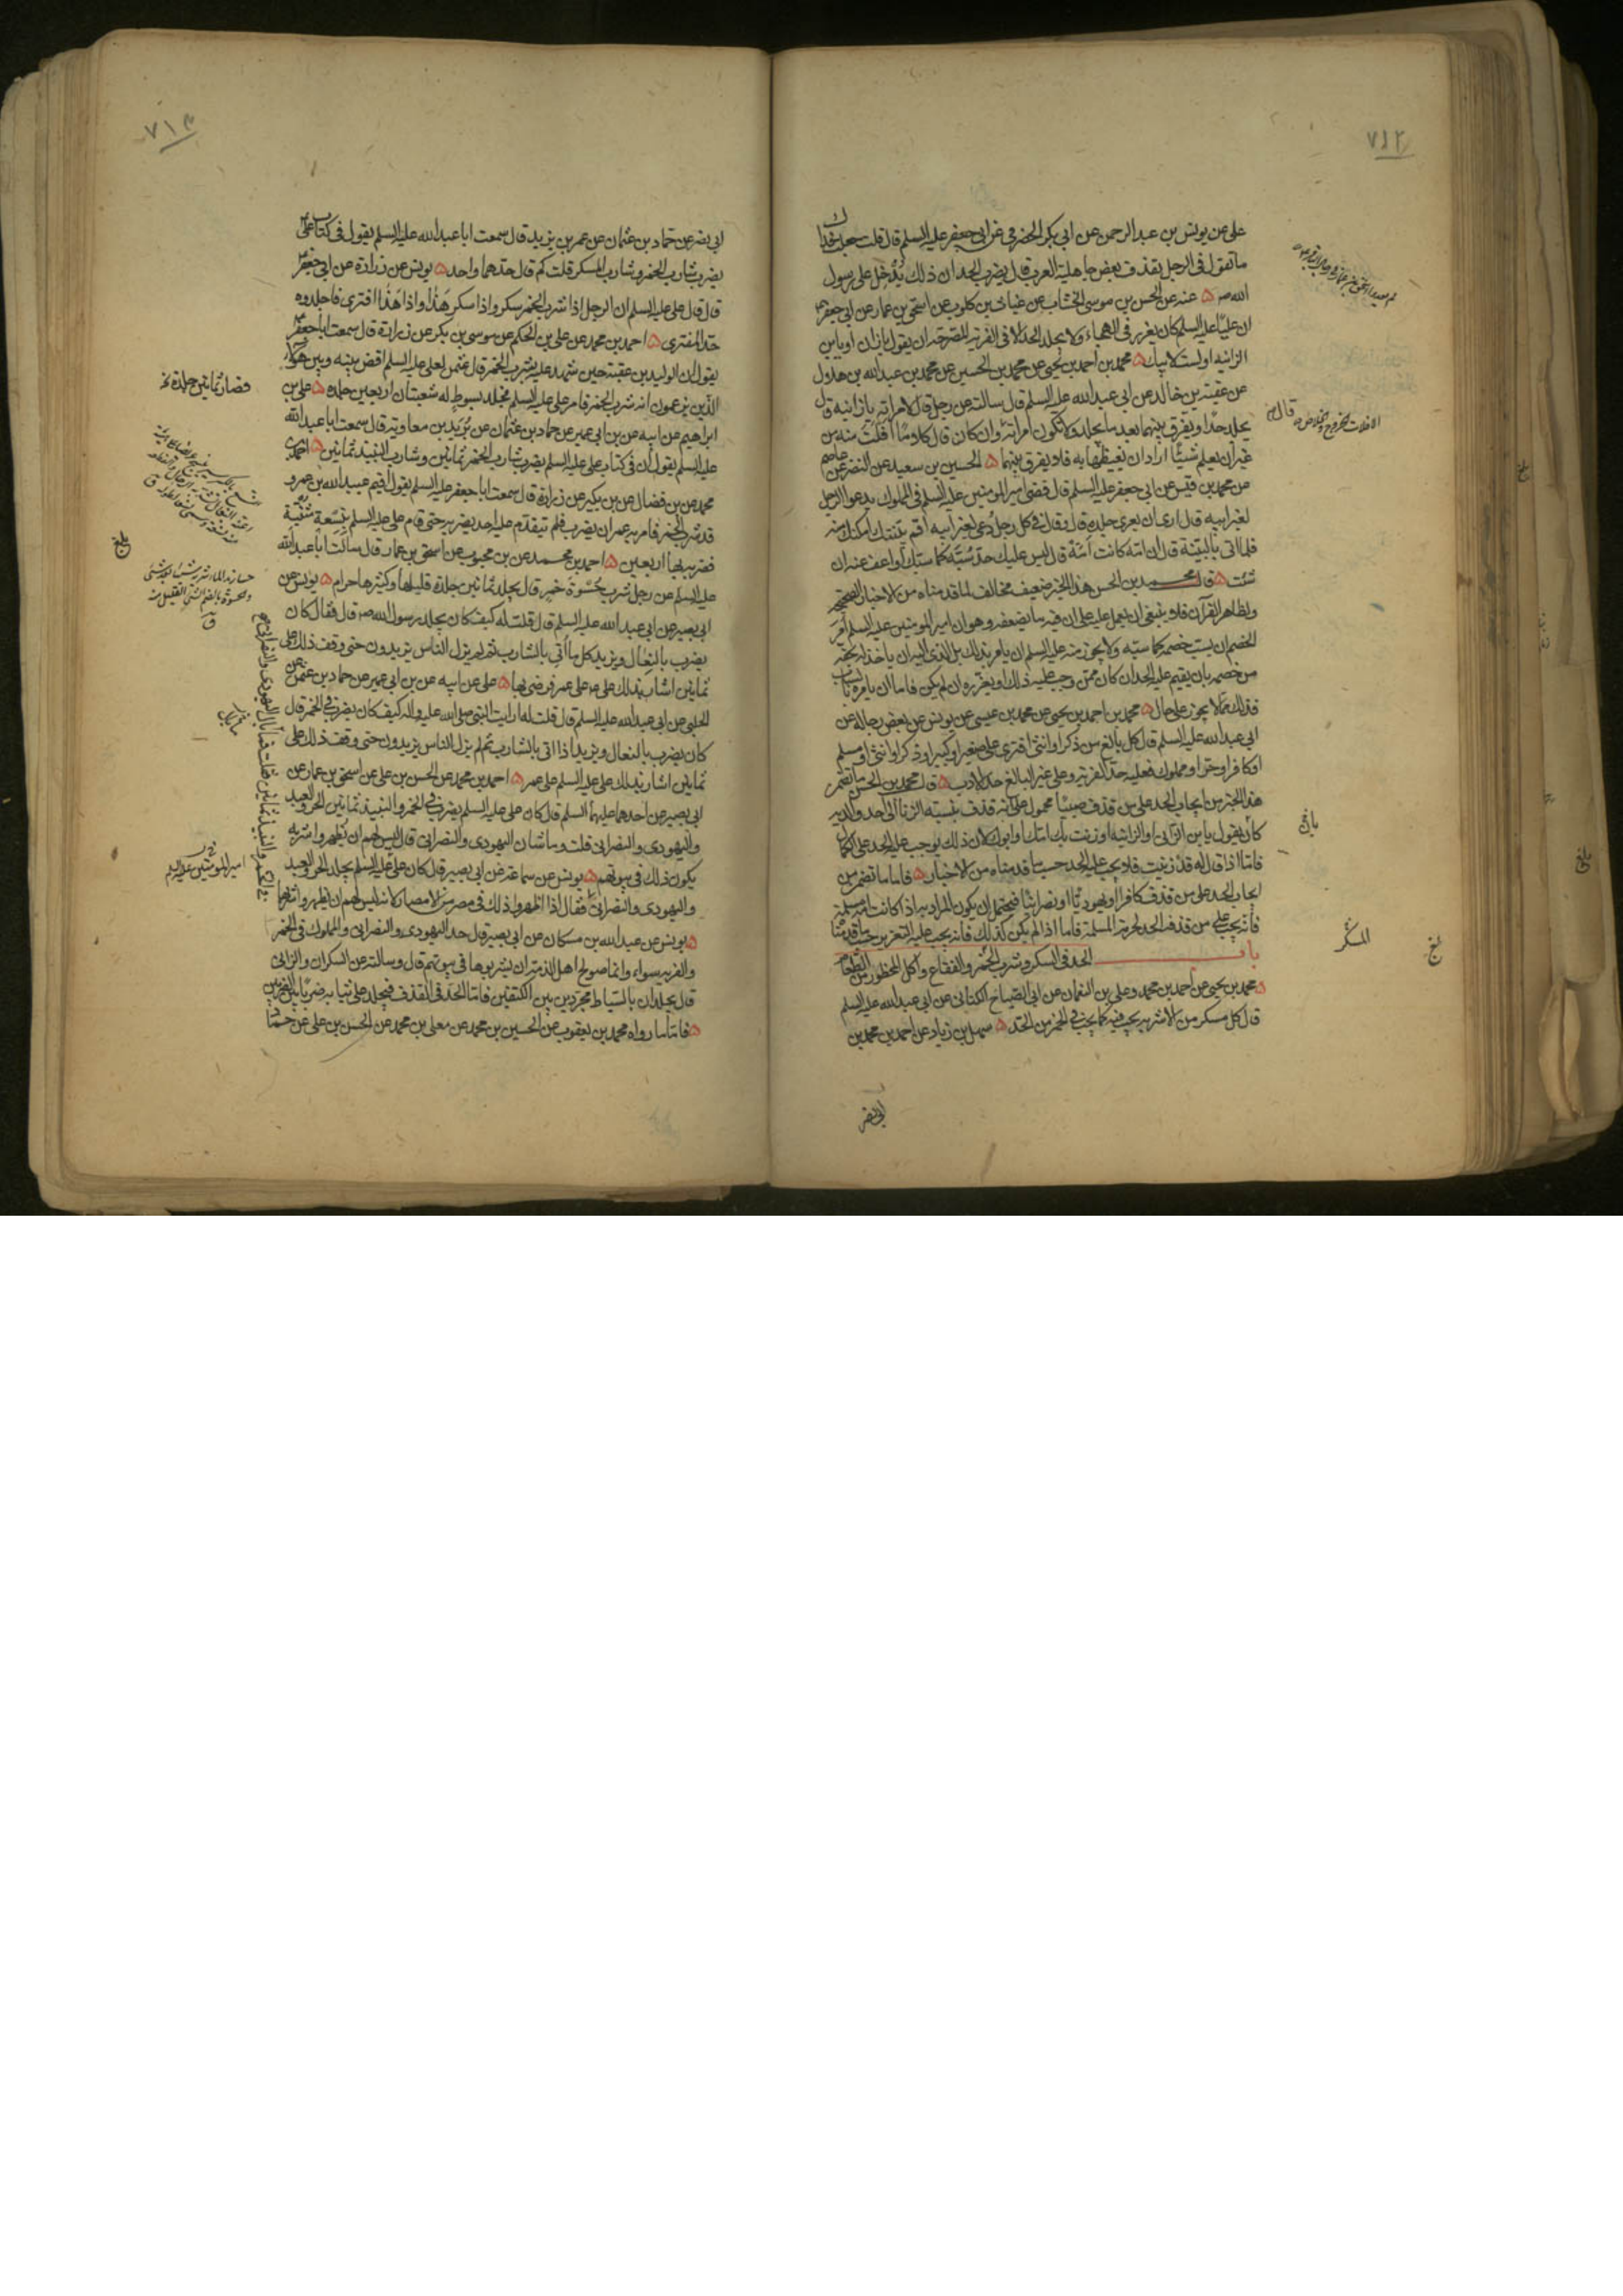 ٧١٢
على عن يونس بن عبد الرحمن عن ابى بكر الحضرمى عن ابى جعفر عليه السلم قال قلت جعلت فداك
ما تقول فى الرجل يقذف بعض جاهلية العرب قال يضرب الحد ان ذلك يدخل على رسول
الله ص ۵ عنه عن الحسن بن موسى الخشاب عن غياث بن كلوب عن اسحق بن عمار عن ابى جعفر ع
ان عليا عليه السلم كان يعزر فى الهجاء ولا يجلد الحد الا فى الفرية المصرحة ان يقول يا زان او يا بن
الزانية او لست لابيك ۵ محمد بن احمد بن يحيى عن محمد بن الحسين عن محمد بن عبد الله بن هلال
عن عقبة بن خالد عن ابى عبد الله عليه السلم قال سالته عن رجل قال لامراته يا زانية قال
يجلد حدا ويفرق بينهما بعد ما يجلد ولا تكون امراته وان كان قال كلاما افلت منه من
غير ان يعلم شيئا اراد ان يغيظها به فلا يفرق بينهما ۵ الحسين بن سعيد عن النضر عن عاصم
عن محمد بن قيس عن ابى جعفر عليه السلم قال قضى امير المومنين عليه السلم فى المملوك يدعو الرجل
لغير ابيه قال ارى ان يعرى جلده قال وقال فى كل رجل دعى لغير ابيه اقم بينتك امكنك منه
فلما اتى بالبينة قال ان امه كانت امة قال ليس عليك حد سبه كما سبك او اعف عنه ان
شئت ۵ قال محمد بن الحسن هذا الخبر ضعيف مخالف لما قدمناه من الاخبار الصحيحة
ولظاهر القرآن فلا ينبغى ان يعمل عليه على ان فيه ما يضعفه وهو ان امير المومنين عليه السلم امر
الخصم ان يسب خصمه كما سبه ولا يجوز منه عليه السلم ان يامر بذلك بل الذى اليه ان ياخذ له بحقه
من خصمه بان يقيم عليه الحد ان كان ممن وجب عليه ذلك او يعزره ان لم يكن فاما ان يامره بالسباب
فذلك مما لا يجوز على حال ۵ محمد بن احمد بن يحيى عن محمد بن عيسى عن يونس عن بعض رجاله عن
ابى عبد الله عليه السلم قال كل بالغ من ذكر او انثى افترى على صغير او كبير او ذكر او انثى او مسلم
او كافر او حر او مملوك فعليه حد الفرية وعلى غير البالغ حد الادب ۵ قال محمد بن الحسن ما تضمن
هذا الخبر من ايجاب الحد على من قذف صبيا محمول على انه قذف بنسبة الزنا الى احد والديه
كان يقول يا بن الزانى او الزانية او زنت بك امك او ابوك لان ذلك يوجب عليه الحد على الكمال
فاما اذا قال له قد زنيت فلا يجب عليه الحد حسب ما قدمناه من الاخبار ۵ فاما ما تضمن من
ايجاب الحد على من قذف كافرا او يهوديا او نصرانيا فيحتمل ان يكون المراد به اذا كانت امه مسلمة
فانه يجب على من قذفه الحد لحرمة المسلمة فاما اذا لم يكن كذلك فانه يجب عليه التعزير حسب ما قدمنا
باب الحد فى السكر وشرب الخمر والفقاع واكل المحظور من الطعام
۵ محمد بن يحيى عن احمد بن محمد وعلى بن النعمان عن ابى الصباح الكنانى عن ابى عبد الله عليه السلم
قال كل مسكر من الاشربة يجب فيه كما يجب فى الخمر من الحد ۵ سهل بن زياد عن احمد بن محمد بن
ابى نصر
المسكر
٧١٣
ابى نصر عن حماد بن عثمان عن عمر بن يزيد قال سمعت ابا عبد الله عليه السلم يقول فى كتاب على ع
يضرب شارب الخمر وشارب المسكر قلت كم قال حدهما واحد ۵ يونس عن زرارة عن ابى جعفر ع
قال قال على عليه السلم ان الرجل اذا شرب الخمر سكر واذا سكر هذا واذا هذا افترى فاجلدوه
حد المفترى ۵ احمد بن محمد عن على بن الحكم عن موسى بن بكر عن زرارة قال سمعت ابا جعفر ع
يقول ان الوليد بن عقبة حين شهد عليه بشرب الخمر قال عثمن لعلى عليه السلم اقض بينه وبين هؤلاء
الذين يزعمون انه شرب الخمر فامر على عليه السلم فجلد بسوط له شعبتان اربعين جلدة ۵ على بن
ابراهيم عن ابيه عن بن ابى عمير عن حماد بن عثمان عن بريد بن معاوية قال سمعت ابا عبد الله
عليه السلم يقول ان فى كتاب على عليه السلم يضرب شارب الخمر ثمانين وشارب النبيذ ثمانين ۵ احمد بن
محمد عن بن فضال عن بن بكير عن زرارة قال سمعت ابا جعفر عليه السلم يقول اقيم عبيد الله بن عمر و
قد شرب الخمر فامر به عمر ان يضرب فلم يتقدم عليه احد يضربه حتى قام على عليه السلم بنسعة مثنية
فضربه بها اربعين ۵ احمد بن محمد عن بن محبوب عن اسحق بن عمار قال سالت ابا عبد الله
عليه السلم عن رجل شرب حسوة خمر قال يجلد ثمانين جلدة قليلها وكثيرها حرام ۵ يونس عن
ابى بصير عن ابى عبد الله عليه السلم قال قلت له كيف كان يجلد رسول الله ص قال فقال كان
يضرب بالنعال ويزيد كل ما اتى بالشارب ثم لم يزل الناس يزيدون حتى وقف ذلك على
ثمانين اشار بذلك على ع على عمر فرضى بها ۵ على عن ابيه عن بن ابى عمير عن حماد بن عثمن عن
الحلبى عن ابى عبد الله عليه السلم قال قلت له ارايت النبى صلى الله عليه واله كيف كان يضرب فى الخمر قال
كان يضرب بالنعال ويزيد اذا اتى بالشارب ثم لم يزل الناس يزيدون حتى وقف ذلك على
ثمانين اشار بذلك على عليه السلم على عمر ۵ احمد بن محمد عن الحسن بن على عن اسحق بن عمار عن
ابى بصير عن احدهما عليهما السلم قال كان على عليه السلم يضرب فى الخمر والنبيذ ثمانين الحر والعبد
واليهودى والنصرانى قلت وما شان اليهودى والنصرانى قال ليس لهم ان يظهروا شربه
يكون ذلك فى بيوتهم ۵ يونس عن سماعة عن ابى بصير قال كان على عليه السلم يجلد الحر والعبد
واليهودى والنصرانى فقال اذا اظهروا ذلك فى مصر من الامصار لانه ليس لهم ان يظهروا شربها
۵ يونس عن عبد الله بن مسكان عن ابى بصير قال حد اليهودى والنصرانى والمملوك فى الخمر
والفرية سواء وانما صولح اهل الذمة ان يشربوها فى بيوتهم قال وسالته عن السكران والزانى
قال يجلدان بالسياط مجردين بين الكتفين فاما الحد فى القذف فيجلد على ثيابه ضربا بين الضربين
۵ فاما ما رواه محمد بن يعقوب عن الحسين بن محمد عن معلى بن محمد عن الحسن بن على عن حماد
امير المومنين عليه السلم